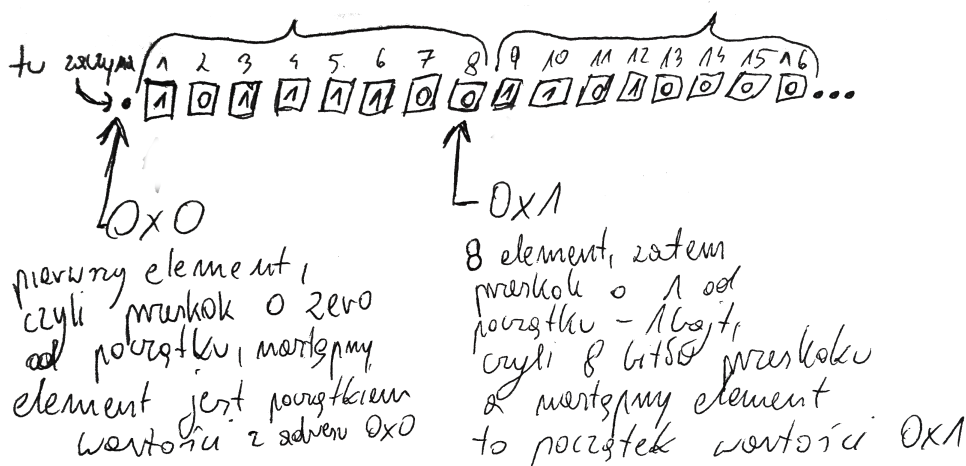 tu zaczyna 1 2 3 4 5. 6 7 8 9 10 11 12 13 14 15 16
. 1 0 1 1 1 1 0 0 1 1 0 1 0 0 0 0 ...
0x0
0x1
pierwszy element,
czyli przeskok o zero
od początku, następny
element jest początkiem
wartości z adresu 0x0
8 element, zatem
przeskok o 1 od
początku - 1 bajt,
czyli 8 bitów przeskoku
a następny element
to początek wartości 0x1